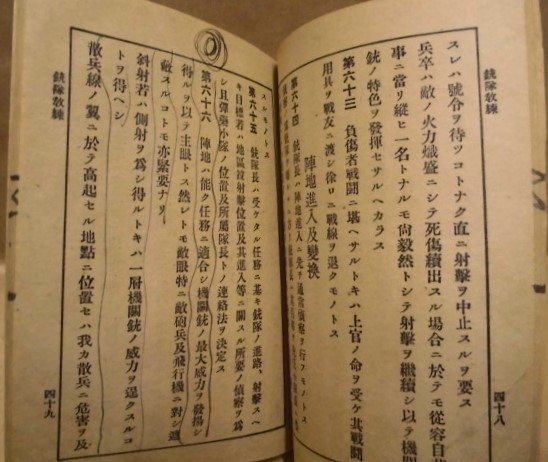 銃隊教練
スレハ號令ヲ待ツコトナク直ニ射擊ヲ中止スルヲ要ス
兵卒ハ敵ノ火力熾盛ニシテ死傷續出スル場合ニ於テモ從容自
事ニ當リ縱ヒ一名トナルモ尙毅然トシテ射擊ヲ繼續シ以テ機關
銃ノ特色ヲ發揮セサルヘカラス
第六十三 負傷者戰鬪ニ堪ヘサルトキハ上官ノ命ヲ受ケ其戰鬪
用具ヲ戰友ニ渡シ徐ロニ戰線ヲ退クモノトス
陣地進入及變換
第六十四 銃隊長ハ陣地進入ニ先チ通常偵察ヲ行フモノトス
四十八
銃隊教練
スルモノトス
第六十五 銃隊長ハ受ケタル任務ニ基キ銃隊ノ進路、射擊スヘ
キ目標若ハ地區放射擊位置及其進入等ニ關スル所要ノ偵察ヲ爲
シ且彈藥小隊ノ位置及所屬隊長トノ連絡法ヲ決定ス
第六十六 陣地ハ能ク任務ニ適合シ機關銃ノ最大威力ヲ發揚シ
得ルヲ以テ主眼トス然レトモ敵眼特ニ敵砲兵及飛行機ニ對シ遮
蔽スルコトモ亦緊要ナリ
斜射若ハ側射ヲ爲シ得ルトキハ一層機關銃ノ威力ヲ逞クスルコ
トヲ得ヘシ
散兵線ノ翼ニ於テ高起セル地點ニ位置セハ我カ散兵ニ危害ヲ及
四十九